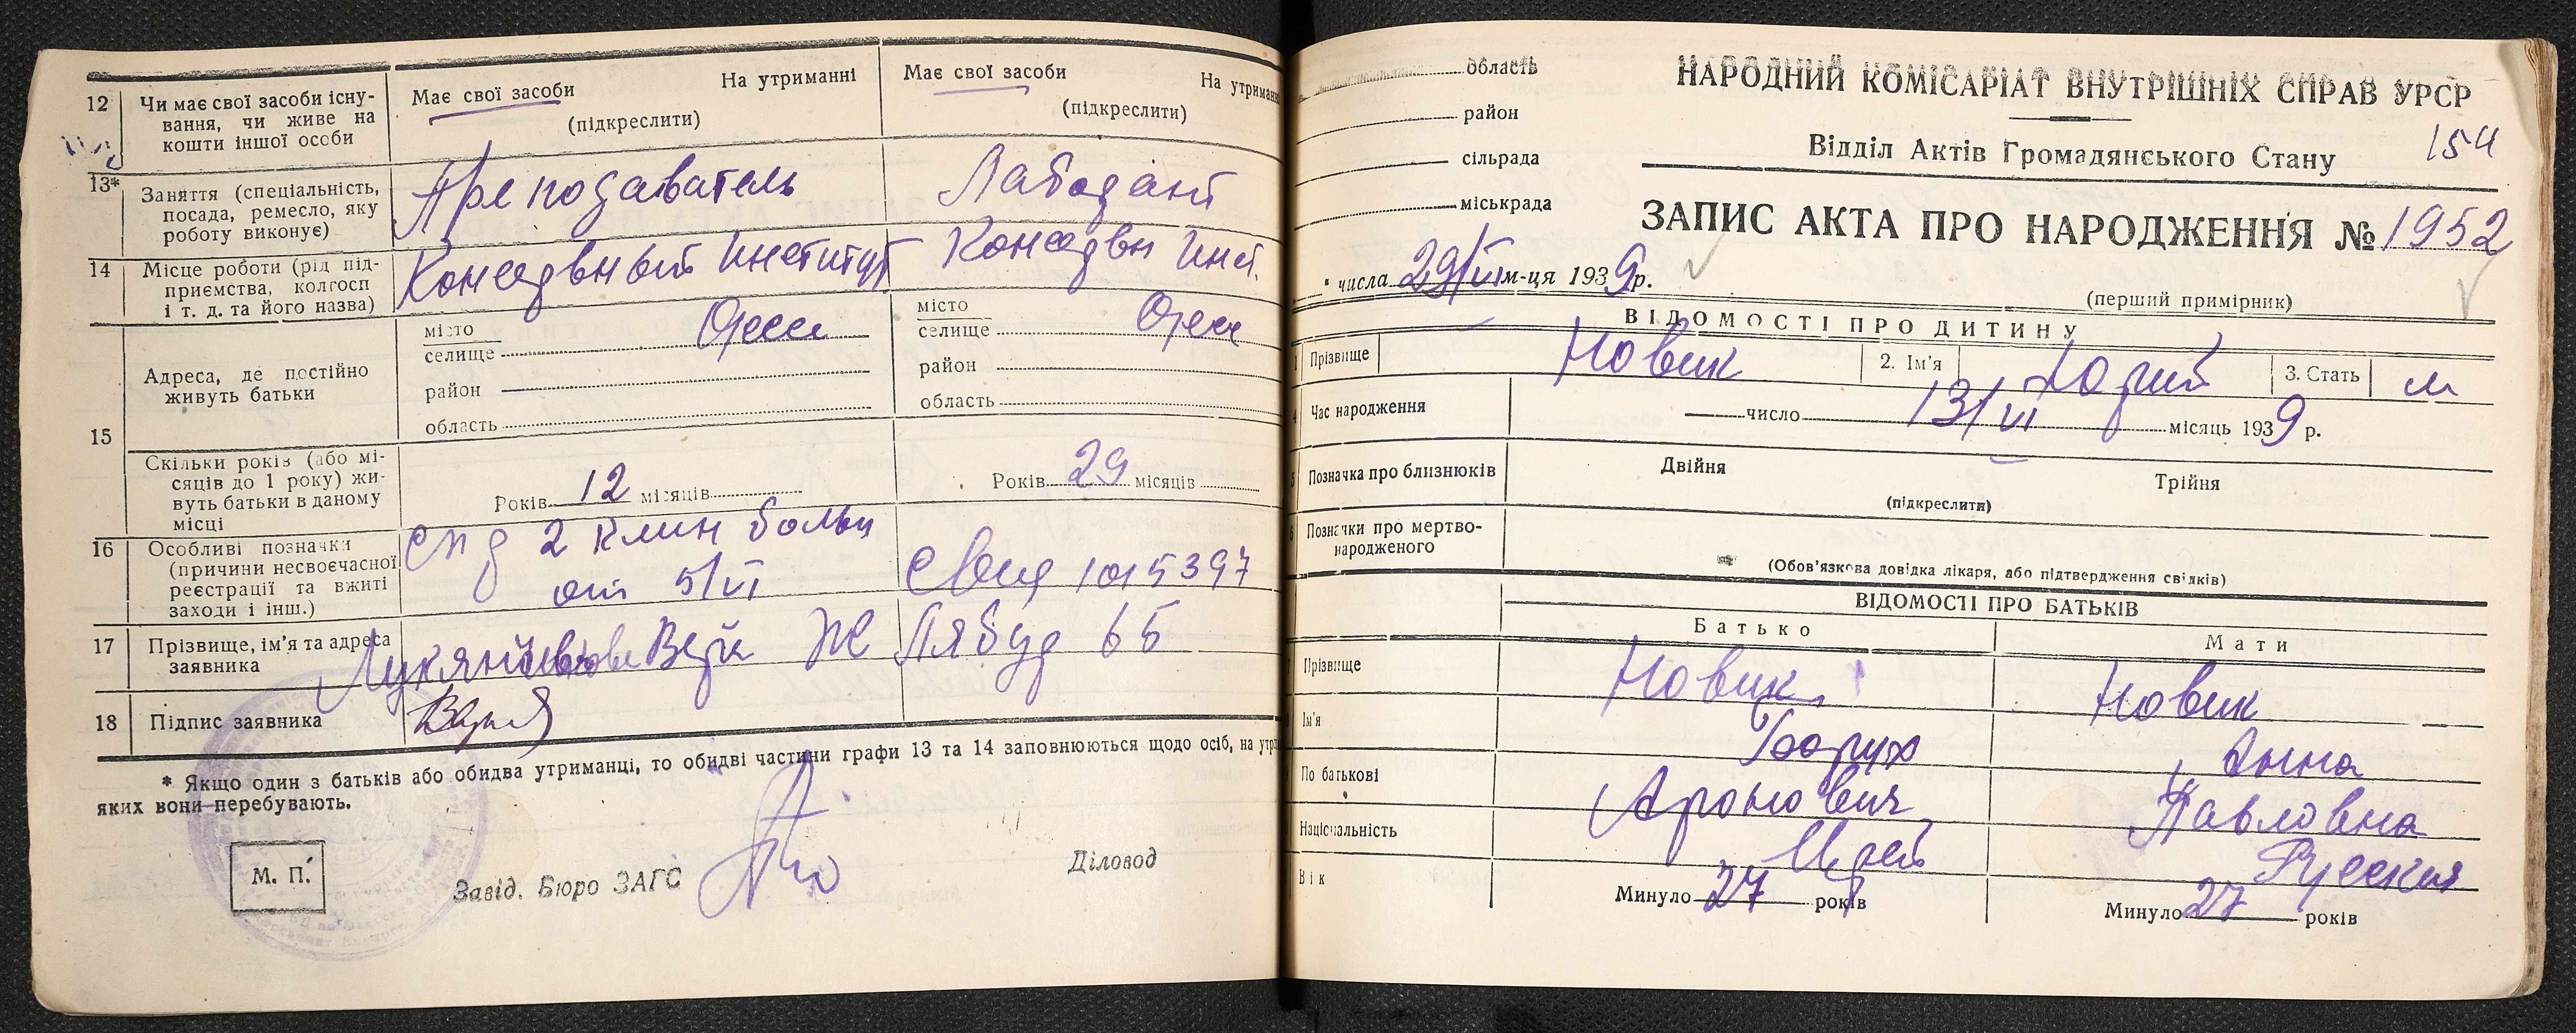 12 Чи має свої засоби існу-
вання, чи живе на
кошти іншої особи
Має свої засоби На утриманні
(підкреслити)
Має свої засоби На утриманні
(підкреслити)
13* Заняття (спеціальність,
посада, ремесло, яку
роботу виконує)
Преподаватель
Лаборант
14 Місце роботи (рід під-
приємства, колгосп
і т. д. та його назва)
Консервный Институт
Консервн Инст.
15
Адреса, де постійно
живуть батьки
місто
селище Одесса
район
область
місто
селище Одесса
район
область
Скільки років (або мі-
сяців до 1 року) жи-
вуть батьки в даному
місці
Років 12 місяців
Років 29 місяців
16 Особливі позначки
(причини несвоєчасної
реєстрації та вжиті
заходи і інш.)
2 клин больн
от 5/VI
1015397
17 Прізвище, ім'я та адреса
заявника
65
18 Підпис заявника
* Якщо один з батьків або обидва утриманці, то обидві частини графи 13 та 14 заповнюються щодо осіб, на утри
яких вони перебувають.
М. П.
Завід. Бюро ЗАГС
Діловод
область
район
сільрада
міськрада
НАРОДНИЙ КОМІСАРІАТ ВНУТРІШНІХ СПРАВ УРСР
154
Відділ Актів Громадянського Стану
ЗАПИС АКТА ПРО НАРОДЖЕННЯ № 1952
" числа 29/VI м-ця 1939 р.
(перший примірник)
ВІДОМОСТІ ПРО ДИТИНУ
1 Прізвище Новик 2. Ім'я Юрий 3. Стать м
4 Час народження число 13/VI місяць 1939 р.
5 Позначка про близнюків Двійня Трійня
(підкреслити)
6 Позначки про мертво-
народженого
(Обов'язкова довідка лікаря, або підтвердження свідків)
ВІДОМОСТІ ПРО БАТЬКІВ
Батько Мати
Прізвище Новик Новик
Ім'я Борух Анна
По батькові Аронович Павловна
Національність Еврей Русская
Вік Минуло 27 років Минуло 27 років